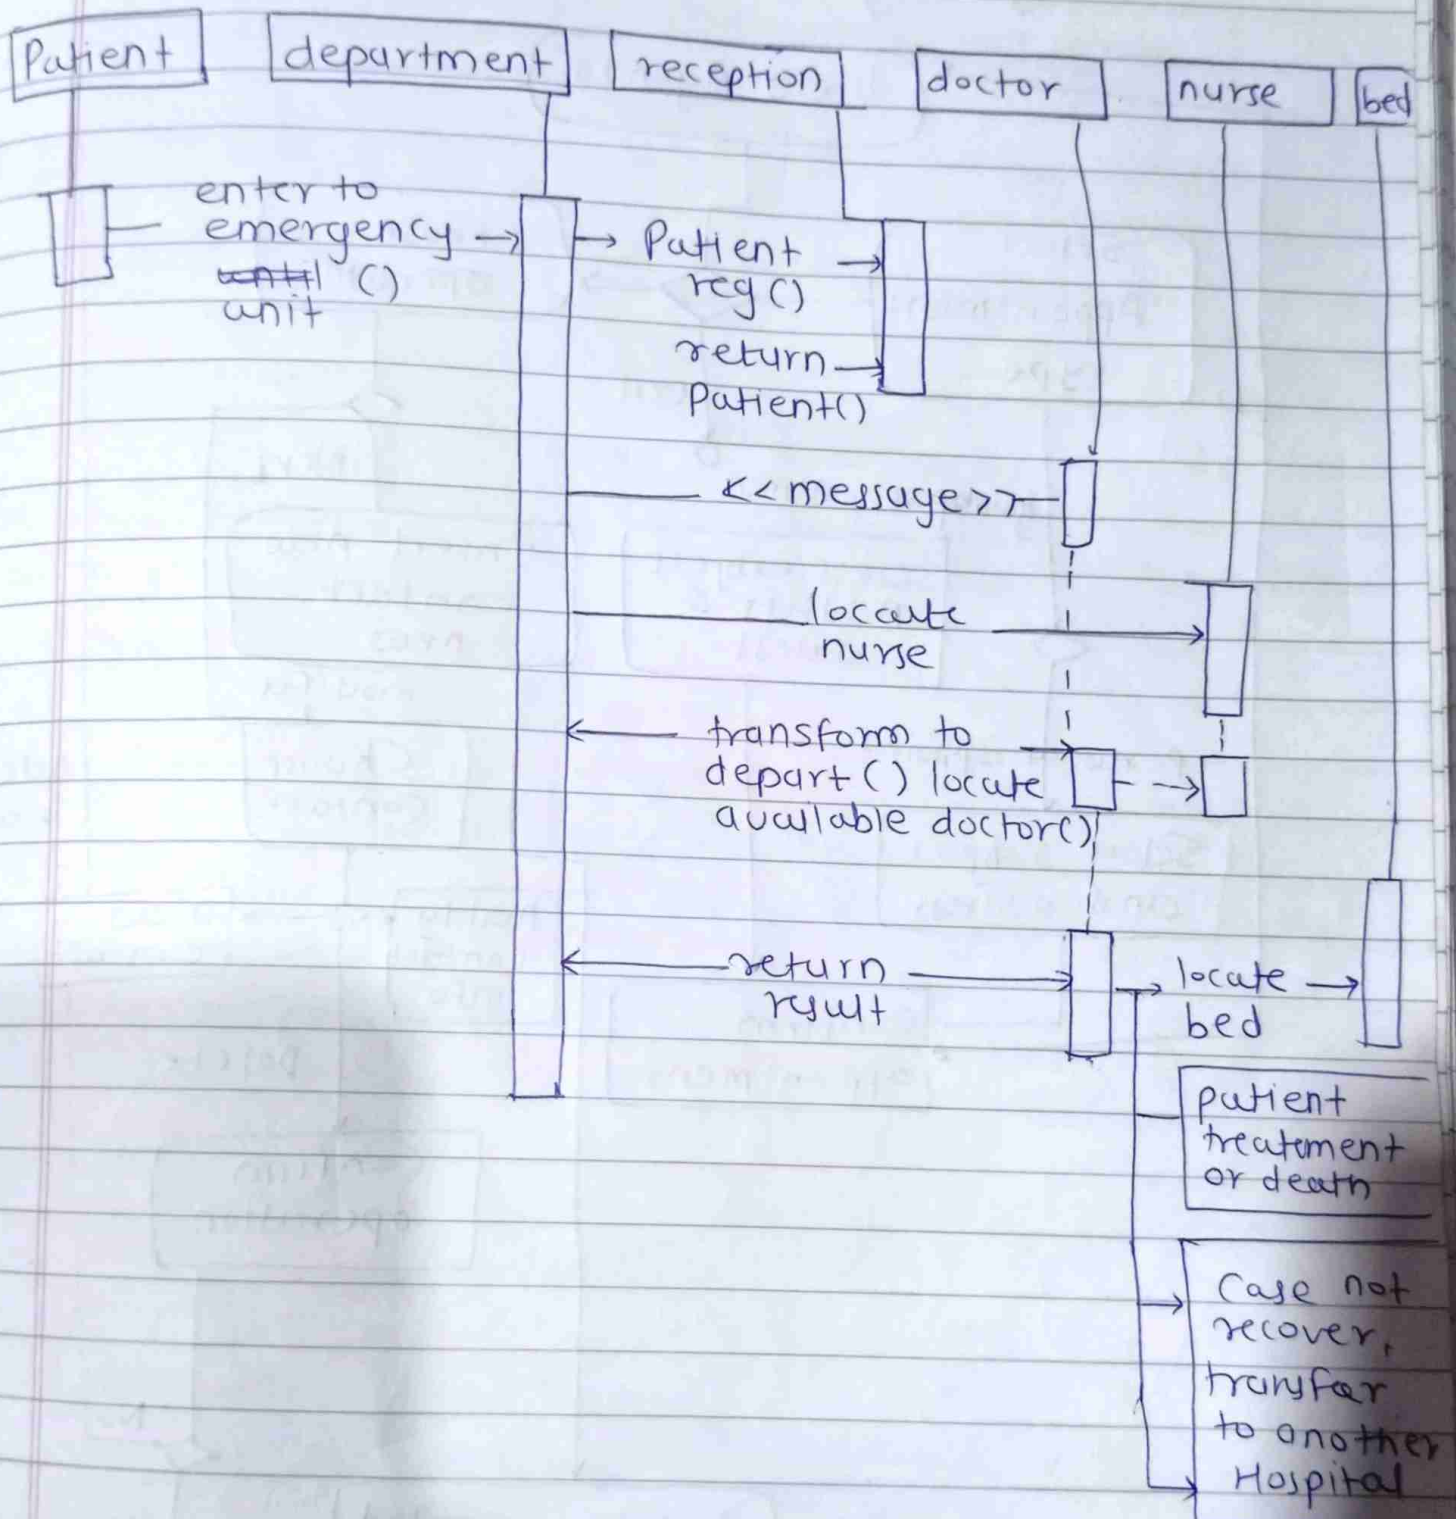 Patient
department
reception
doctor
nurse
bed
enter to
emergency
until ()
unit
Patient
reg()
return
Patient()
<<message>>
locate
nurse
transform to
depart() locate
available doctor()
return
result
locate
bed
patient
treatement
or death
Case not
recover,
transfar
to another
Hospital